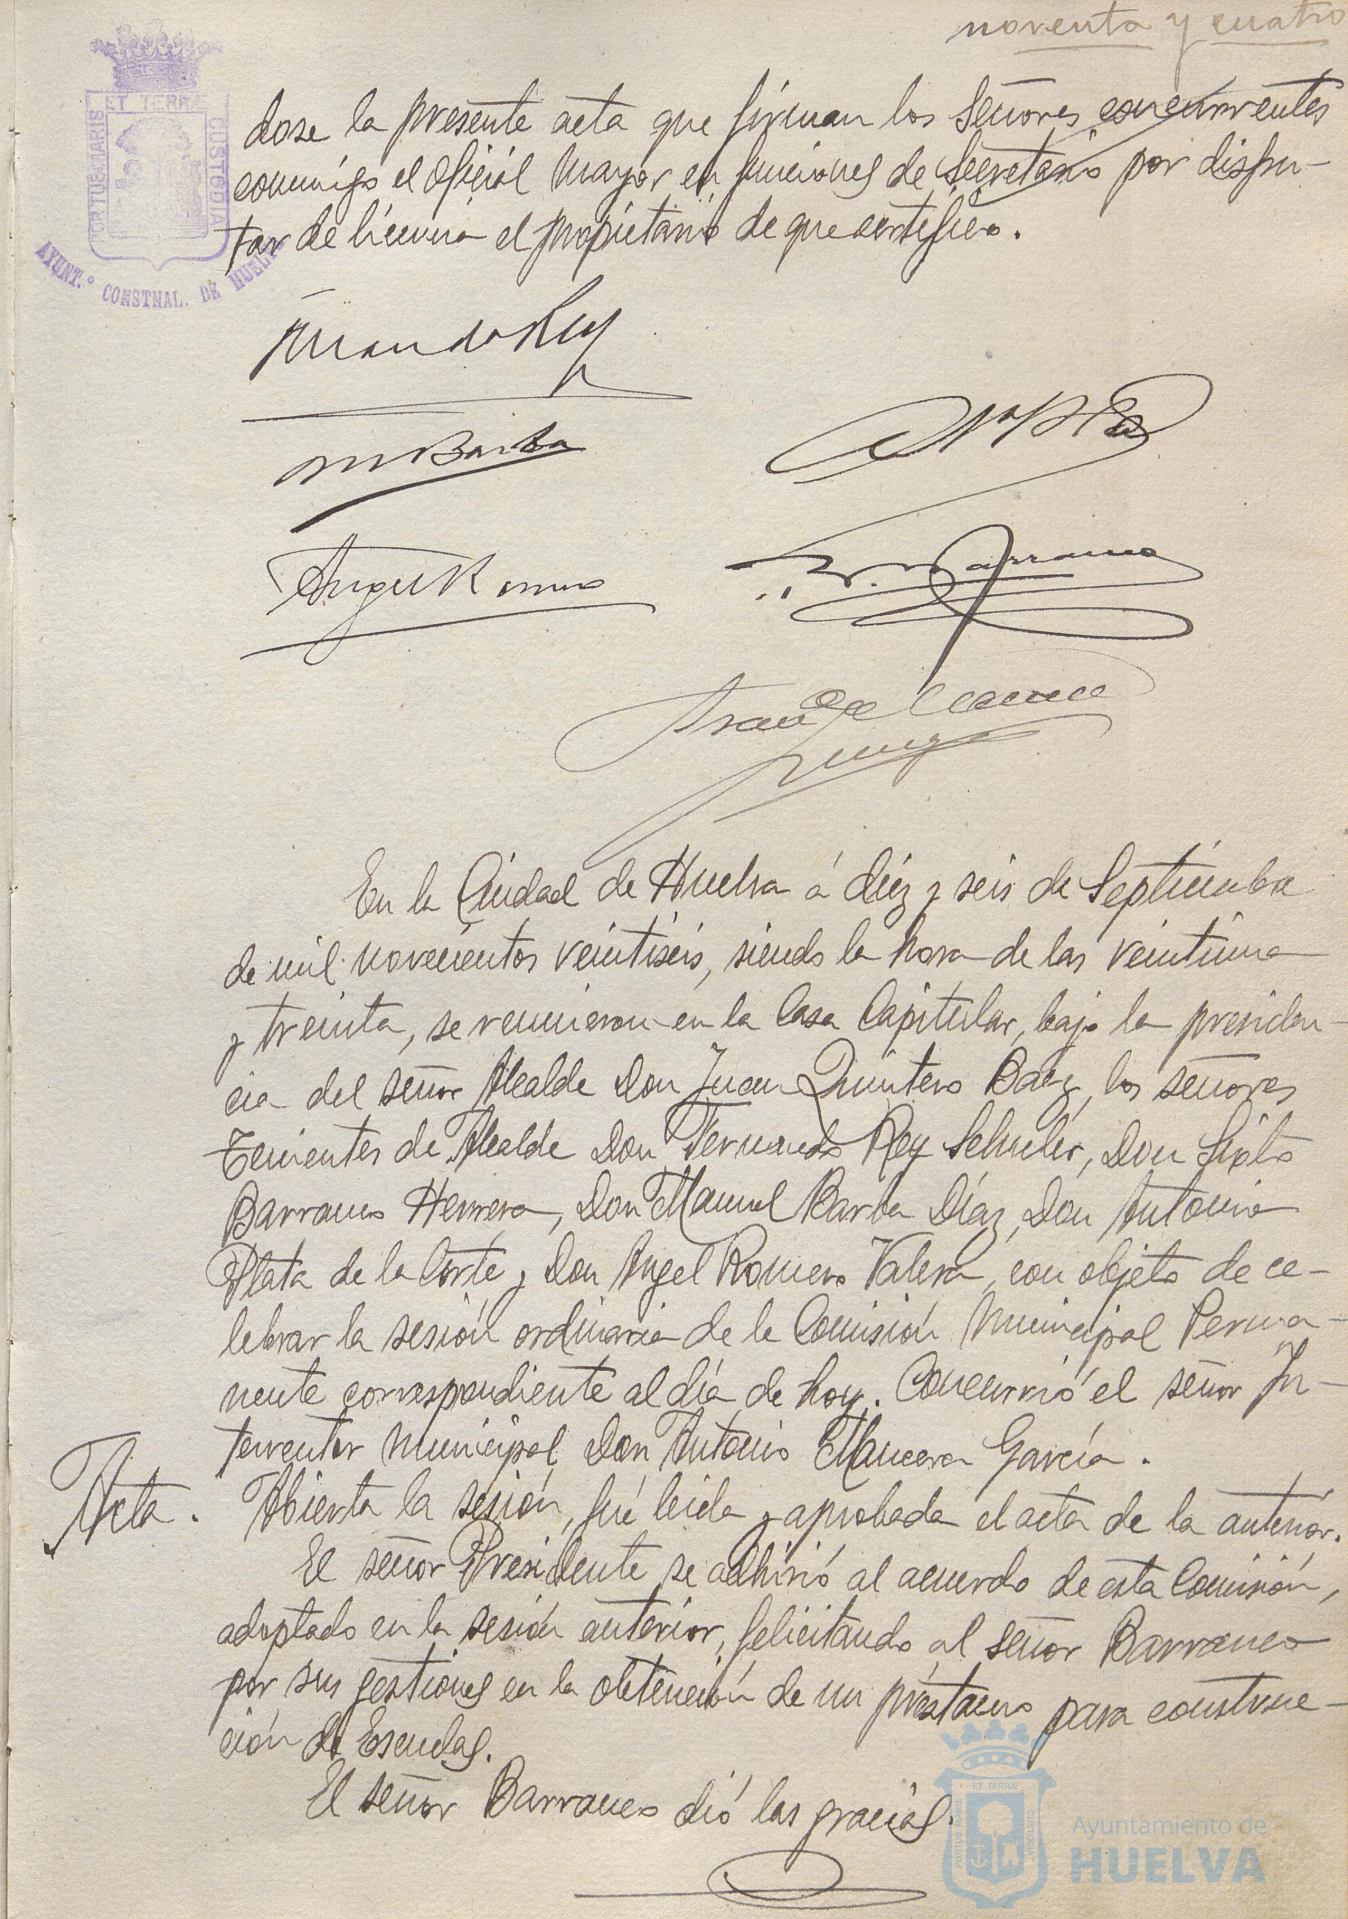 noventa y cuatro
PORTUS MARIS ET TERRÆ CUSTODIA
AYUNT.º CONSTNAL. DE HUELVA
dose la presente acta que firman los Señores concurrentes
conmigo el Oficial Mayor en funciones de Secretario por disfru-
tar de licencia el propietario de que certifico.
M Barba
Angel Romero
Barranco
En la Ciudad de Huelva á diez y seis de Septiembre
de mil novecientos veintiseis, siendo la hora de las veintiuna
y treinta, se reunieron en la Casa Capitular, bajo la presiden-
cia del señor Alcalde Don Juan Quintero Baez, los señores
Tenientes de Alcalde Don Fernando Rey Schuler, Don Sixto
Barranco Herrera, Don Manuel Barba Díaz, Don Antonio
Plata de la Corte y Don Angel Romero Valera, con objeto de ce-
lebrar la sesión ordinaria de la Comisión Municipal Perma-
nente correspondiente al día de hoy. Concurrió el señor In-
terventor Municipal, Don Antonio Mancera García.
Acta. Abierta la sesión, fué leida y aprobada el acta de la anterior.
El señor Presidente se adhirió al acuerdo de esta Comisión,
adoptado en la sesión anterior, felicitando al señor Barranco
por sus gestiones en la obtención de un préstamo para construc-
ción de Escuelas.
El señor Barranco dió las gracias.
Ayuntamiento de
HUELVA